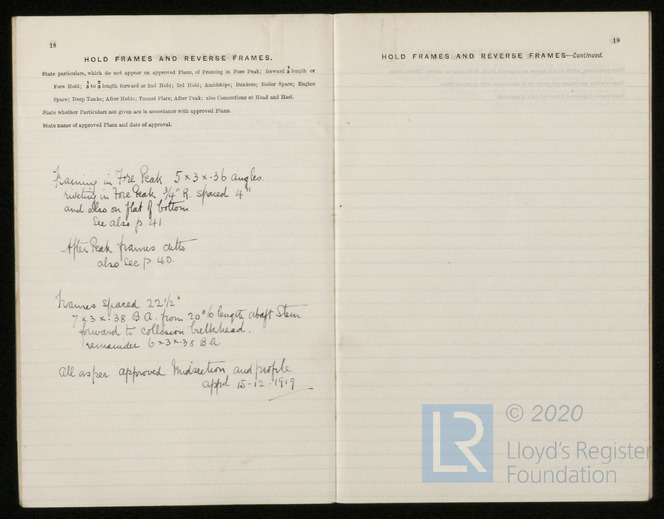 18
HOLD FRAMES AND REVERSE FRAMES.
State particulars, which do not appear on approved Plans, of Framing in Fore Peak; forward ⅕ length or
Fore Hold; ⅕ to length forward or 2nd Hold; 3rd Hold; Amidships; Bunkers; Boiler Space; Engine
Space; Deep Tanks; After Holds; Tunnel Flats; After Peak; also Connections at Head and Heel.
State whether Particulars not given are in accordance with approved Plans.
State name of approved Plans and date of approval.
Framing in Fore Peak 5 x 3 x .36 angles.
riveting in Fore Peak ¾" R. spaced 4"
and also on flat of bottom
See also p 41
After Peak frames ditto
also see p 40.
Frames spaced 22½"
7 x 3 x .38 B A. from 20% length abaft Stem
forward to collision bulkhead.
remainder 6 x 3 x .38 B A
All as per approved Midsection, and profile
appd 15-12-1919
19
HOLD FRAMES AND REVERSE FRAMES—Continued.
LR
© 2020
Lloyd's Register
Foundation